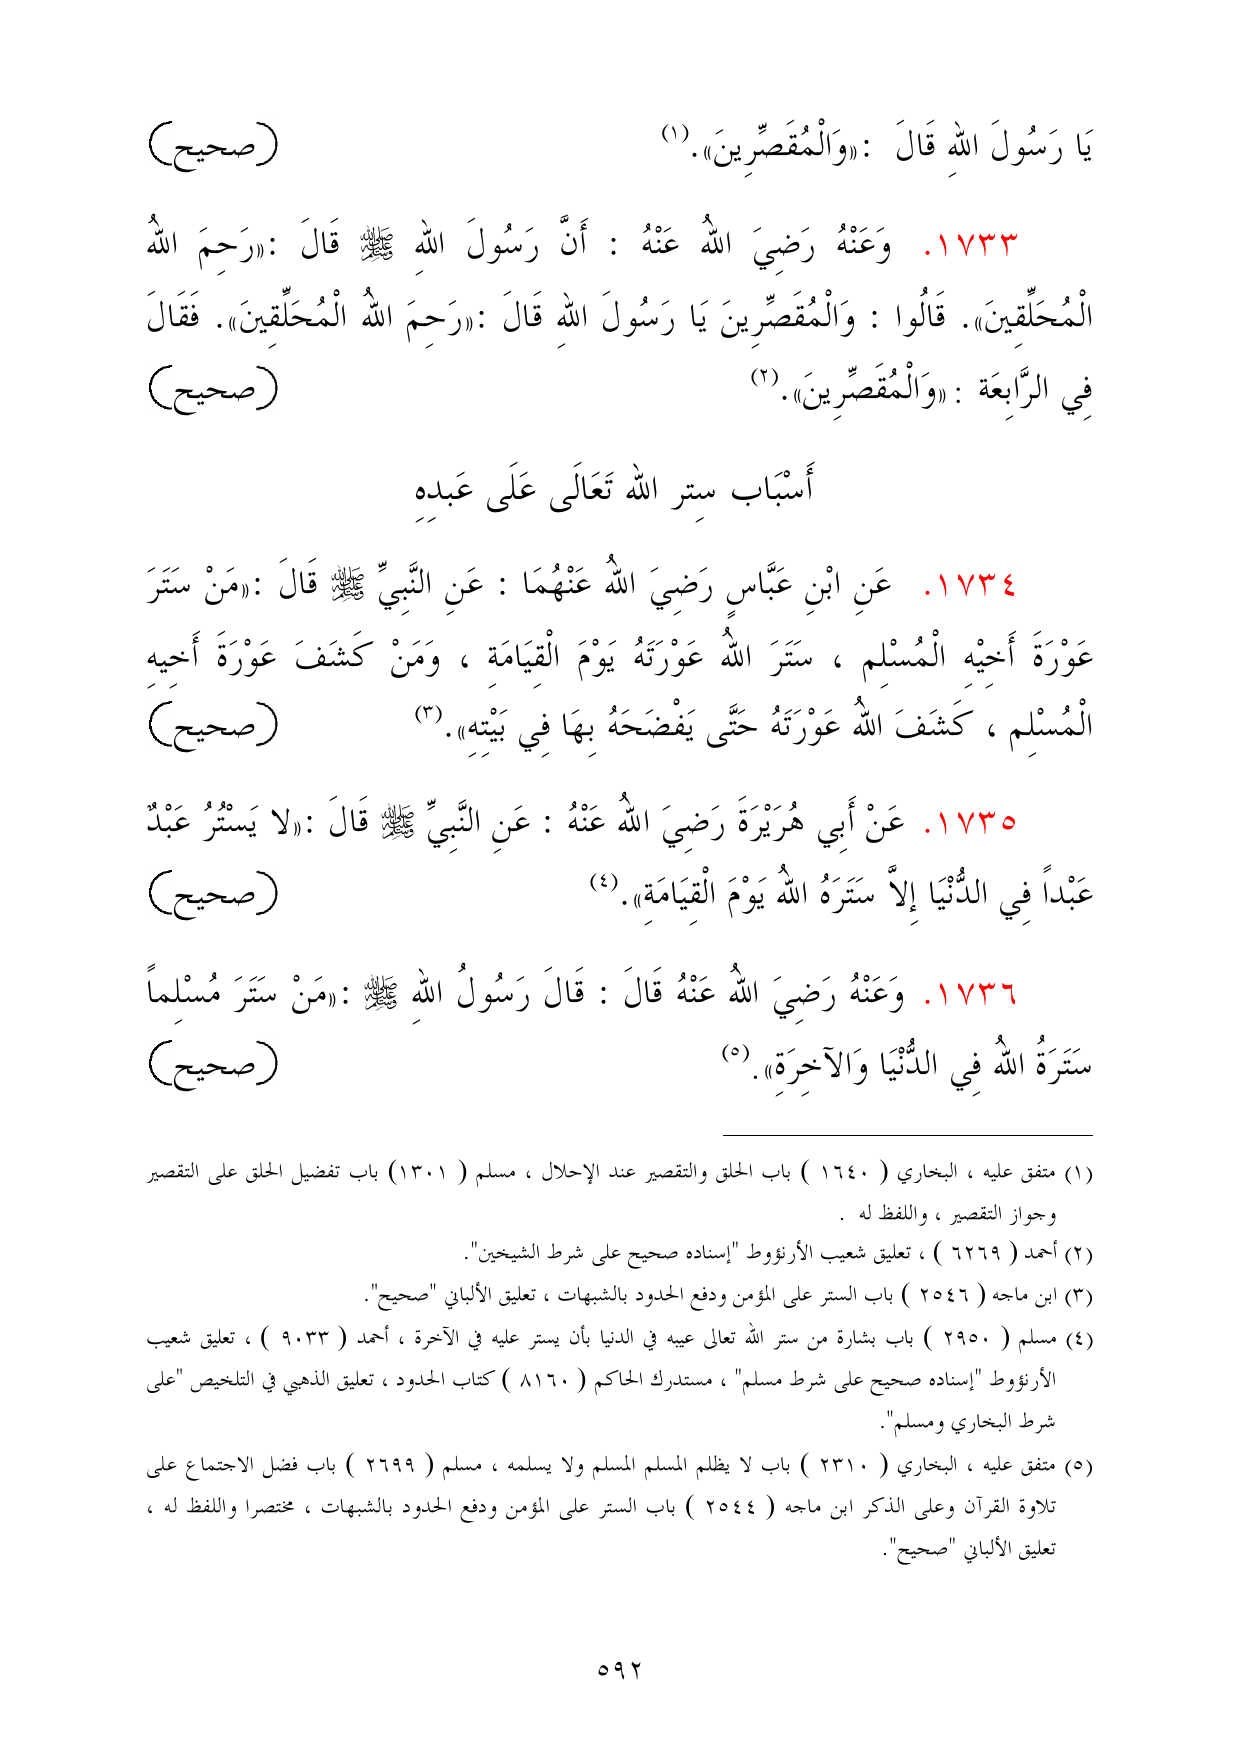 يَا رَسُولَ اللهِ قَالَ :«وَالْمُقَصِّرِينَ».(١) (صحيح)
١٧٣٣. وَعَنْهُ رَضِيَ اللهُ عَنْهُ : أَنَّ رَسُولَ اللهِ ﷺ قَالَ :«رَحِمَ اللهُ
الْمُحَلِّقِينَ». قَالُوا : وَالْمُقَصِّرِينَ يَا رَسُولَ اللهِ قَالَ :«رَحِمَ اللهُ الْمُحَلِّقِينَ». فَقَالَ
فِي الرَّابِعَة : «وَالْمُقَصِّرِينَ».(٢) (صحيح)
أَسْبَاب سِتر الله تَعَالَى عَلَى عَبدِهِ
١٧٣٤. عَنِ ابْنِ عَبَّاسٍ رَضِيَ اللهُ عَنْهُمَا : عَنِ النَّبِيِّ ﷺ قَالَ :«مَنْ سَتَرَ
عَوْرَةَ أَخِيْهِ الْمُسْلِمِ ، سَتَرَ اللهُ عَوْرَتَهُ يَوْمَ الْقِيَامَةِ ، وَمَنْ كَشَفَ عَوْرَةَ أَخِيهِ
الْمُسْلِمِ ، كَشَفَ اللهُ عَوْرَتَهُ حَتَّى يَفْضَحَهُ بِهَا فِي بَيْتِهِ».(٣) (صحيح)
١٧٣٥. عَنْ أَبِي هُرَيْرَةَ رَضِيَ اللهُ عَنْهُ : عَنِ النَّبِيِّ ﷺ قَالَ :«لا يَسْتُرُ عَبْدٌ
عَبْداً فِي الدُّنْيَا إِلاَّ سَتَرَهُ اللهُ يَوْمَ الْقِيَامَةِ».(٤) (صحيح)
١٧٣٦. وَعَنْهُ رَضِيَ اللهُ عَنْهُ قَالَ : قَالَ رَسُولُ اللهِ ﷺ :«مَنْ سَتَرَ مُسْلِماً
سَتَرَهُ اللهُ فِي الدُّنْيَا وَالآخِرَةِ».(٥) (صحيح)
(١) متفق عليه ، البخاري ( ١٦٤٠ ) باب الحلق والتقصير عند الإحلال ، مسلم ( ١٣٠١) باب تفضيل الحلق على التقصير
وجواز التقصير ، واللفظ له .
(٢) أحمد ( ٦٢٦٩ ) ، تعليق شعيب الأرنؤوط "إسناده صحيح على شرط الشيخين".
(٣) ابن ماجه ( ٢٥٤٦ ) باب الستر على المؤمن ودفع الحدود بالشبهات ، تعليق الألباني "صحيح".
(٤) مسلم ( ٢٩٥٠ ) باب بشارة من ستر الله تعالى عيبه في الدنيا بأن يستر عليه في الآخرة ، أحمد ( ٩٠٣٣ ) ، تعليق شعيب
الأرنؤوط "إسناده صحيح على شرط مسلم" ، مستدرك الحاكم ( ٨١٦٠ ) كتاب الحدود ، تعليق الذهبي في التلخيص "على
شرط البخاري ومسلم".
(٥) متفق عليه ، البخاري ( ٢٣١٠ ) باب لا يظلم المسلم المسلم ولا يسلمه ، مسلم ( ٢٦٩٩ ) باب فضل الاجتماع على
تلاوة القرآن وعلى الذكر ابن ماجه ( ٢٥٤٤ ) باب الستر على المؤمن ودفع الحدود بالشبهات ، مختصرا واللفظ له ،
تعليق الألباني "صحيح".
٥٩٢